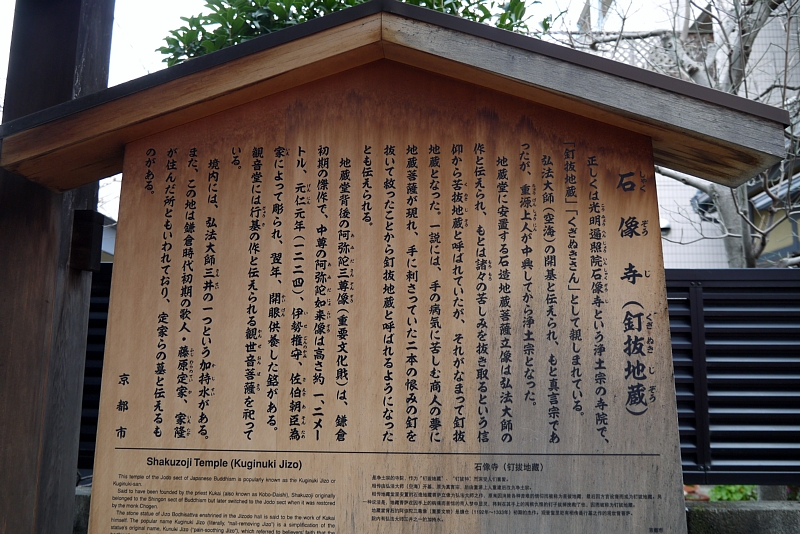 石像寺（釘抜地蔵）
正しくは光明遍照院石像寺という浄土宗の寺院で、
「釘抜地蔵」「くぎぬきさん」として親しまれている。
弘法大師（空海）の開基と伝えられ、もと真言宗であ
ったが、重源上人が中興してから浄土宗となった。
地蔵堂に安置する石造地蔵菩薩立像は弘法大師の
作と伝えられ、もとは諸々の苦しみを抜き取るという信
仰から苦抜地蔵と呼ばれていたが、それがなまって釘抜
地蔵となった。一説には、手の病気に苦しむ商人の夢に
地蔵菩薩が現れ、手に刺さっていた二本の恨みの釘を
抜いて救ったことから釘抜地蔵と呼ばれるようになった
とも伝えられる。
地蔵堂背後の阿弥陀三尊像（重要文化財）は、鎌倉
初期の傑作で、中尊の阿弥陀如来像は高さ約一、二メー
トル、元仁元年（一二二四）、伊勢権守、佐伯朝臣為
家によって彫られ、翌年、開眼供養した銘がある。
観音堂には行基の作と伝えられる観世音菩薩を祀って
いる。
境内には、弘法大師三井の一つという加持水がある。
また、この地は鎌倉時代初期の歌人・藤原定家、家隆
が住んだ所ともいわれており、定家らの墓と伝えるも
のがある。
京都市
Shakuzoji Temple (Kuginuki Jizo)
This temple of the Jodo sect of Japanese Buddhism is popularly known as the Kuginuki Jizo or
Kuginuki-san.
Said to have been founded by the priest Kukai (also known as Kobo-Daishi), Shakuzoji originally
belonged to the Shingon sect of Buddhism but later switched to the Jodo sect when it was restored
by the monk Chogen.
The stone statue of Jizo Bodhisattva enshrined in the Jizodo hall is said to be the work of Kukai
himself. The popular name Kuginuki Jizo (literally, "nail-removing Jizo") is a simplification of the
statue's original name, Kunuki Jizo ("pain-soothing Jizo"), which referred to believers' faith that the
石像寺（钉拔地藏）